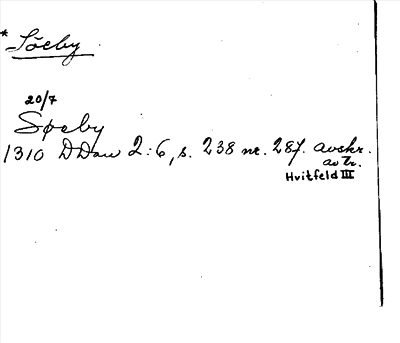 * Söeby
20/7
Søeby
1310 DDan 2:6, s. 238 nr. 287. avskr.
av tr.
Hvitfeld III